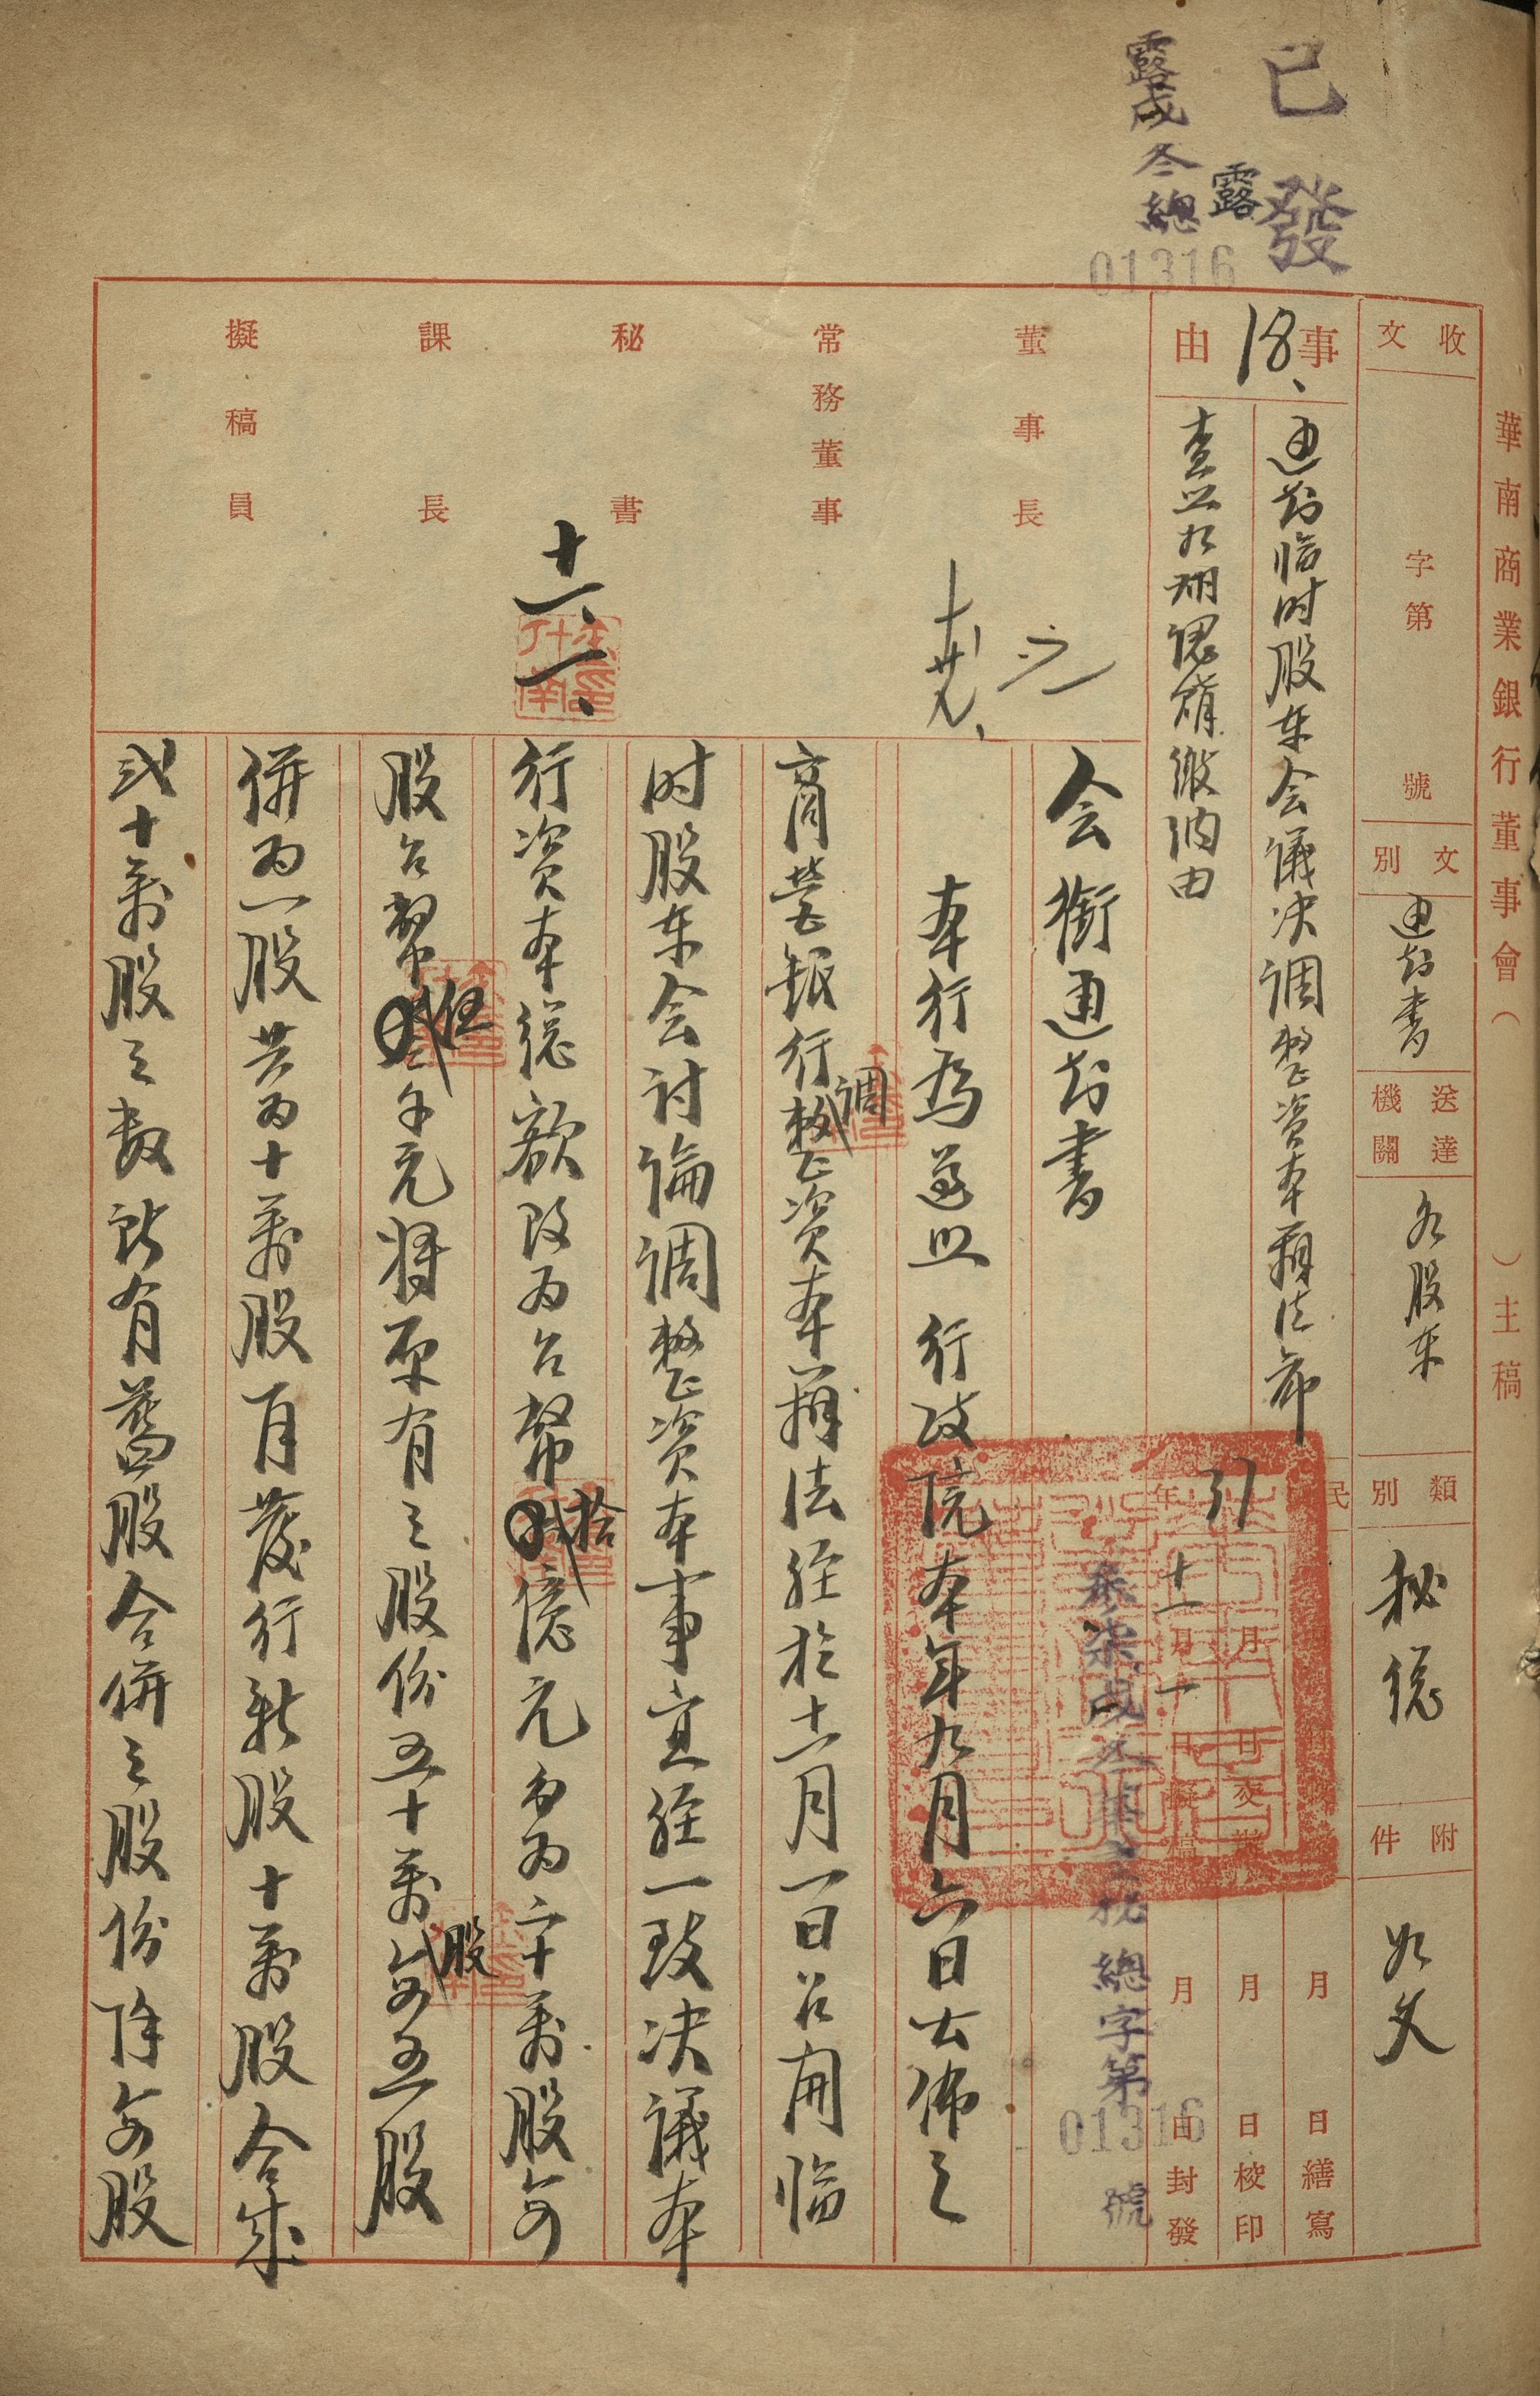 華南商業銀行董事會（　　）主稿
收文
字第　號
文別
通知書
送達機關
各股東
類別
秘總
附件
如文
已發
露
露成冬總
01316
事由
18、
通知臨时股东会議决调整资本辦法希
查照如期認購繳納由
民
37年
月　日交辦
十一月一日擬稿
月　日繕寫
月　日校印
月　日封發
總字第01316號
董事長
常務董事
秘書
十一、一、
課長
擬稿員
会銜通知書
本行為遵照　行政院本年九月六日公佈之
商营銀行调整资本辦法經於十一月一日召開臨
时股东会討論调整资本事宜經一致决議本
行资本總额改为台幣拾億元分为二十萬股每
股台幣伍千元将原有之股份五十萬股每五股
併为一股共为十萬股再發行新股十萬股合成
弍十萬股之数所有舊股合併之股份除每股